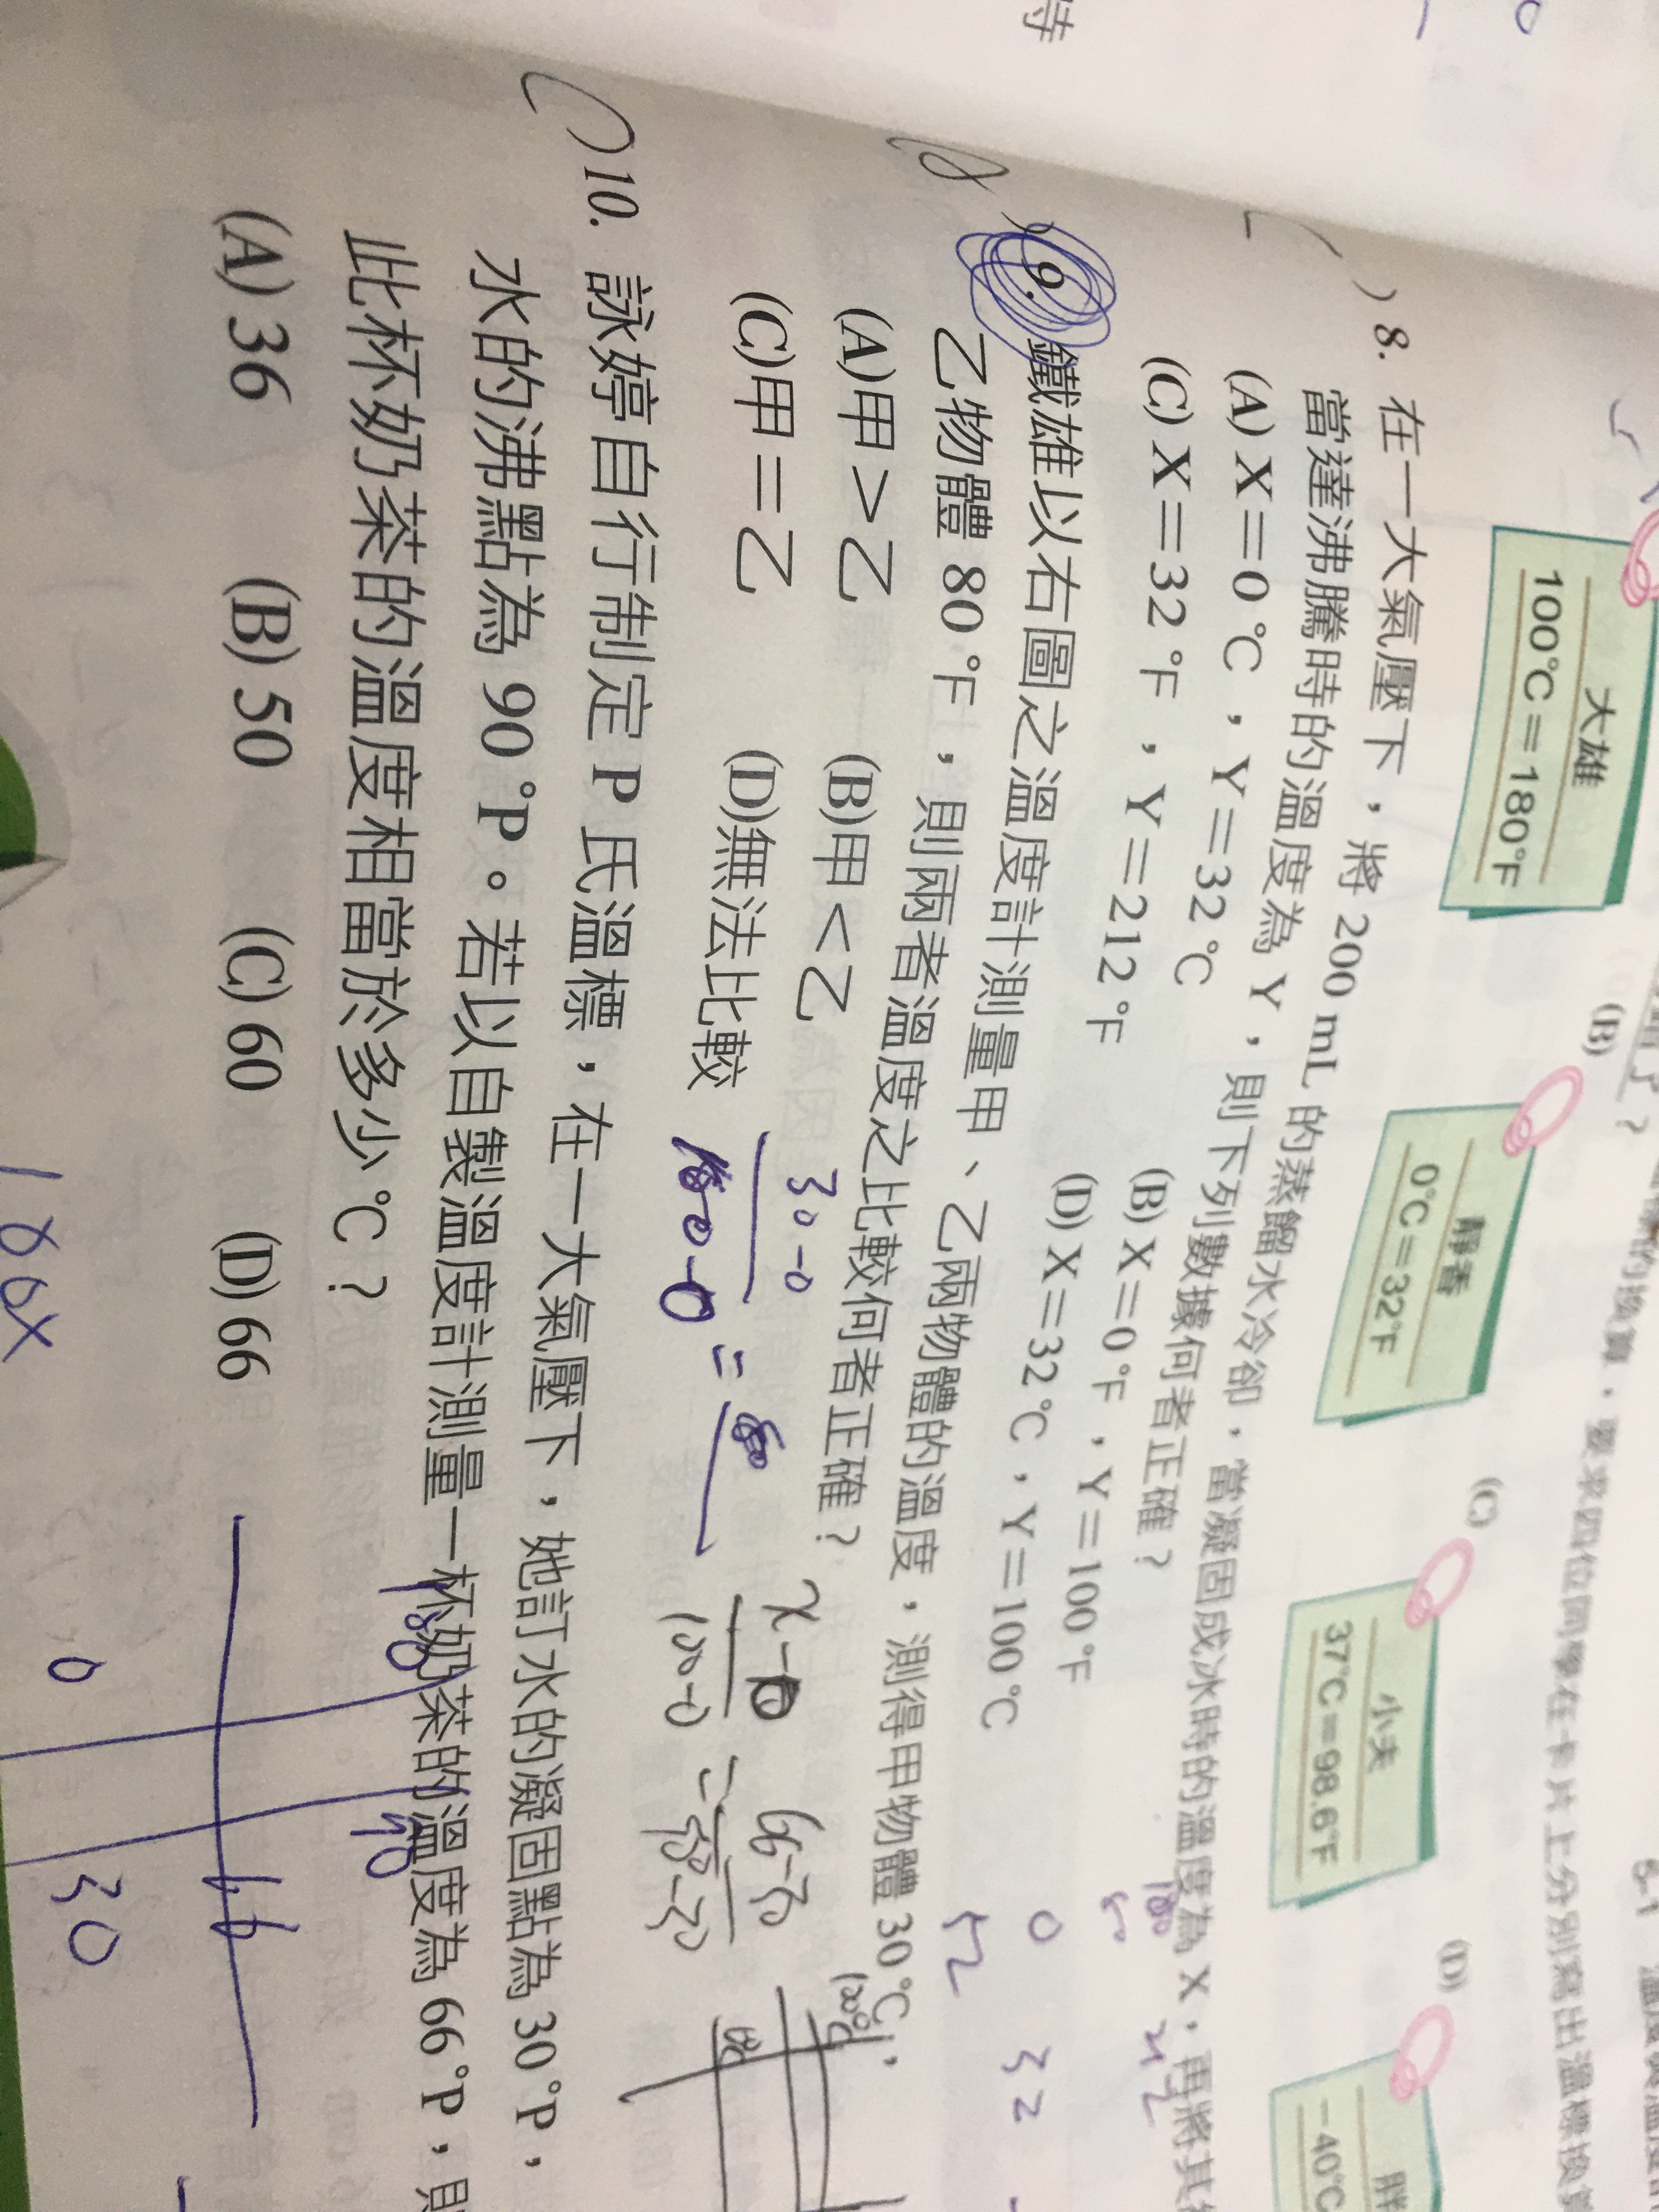 大雄
100℃＝180℉
(B)
靜香
0℃＝32℉
(C)
小夫
37℃＝98.6℉
(D)
胖
－40℃
) 8. 在一大氣壓下，將 200 mL 的蒸餾水冷卻，當凝固成冰時的溫度為 X，再將其
當達沸騰時的溫度為 Y，則下列數據何者正確？
(A) X＝0 ℃，Y＝32 ℃
(B) X＝0 ℉，Y＝100 ℉
(C) X＝32 ℉，Y＝212 ℉
(D) X＝32 ℃，Y＝100 ℃
) 9. 鐵雄以右圖之溫度計測量甲、乙兩物體的溫度，測得甲物體 30 ℃，
乙物體 80 ℉，則兩者溫度之比較何者正確？
(A)甲＞乙
(B)甲＜乙
(C)甲＝乙
(D)無法比較
30-0
x-0
66-30
100-0
( )10. 詠婷自行制定 P 氏溫標，在一大氣壓下，她訂水的凝固點為 30 °P，
水的沸點為 90 °P。若以自製溫度計測量一杯奶茶的溫度為 66 °P，則
此杯奶茶的溫度相當於多少 ℃？
(A) 36
(B) 50
(C) 60
(D) 66
66
0
30